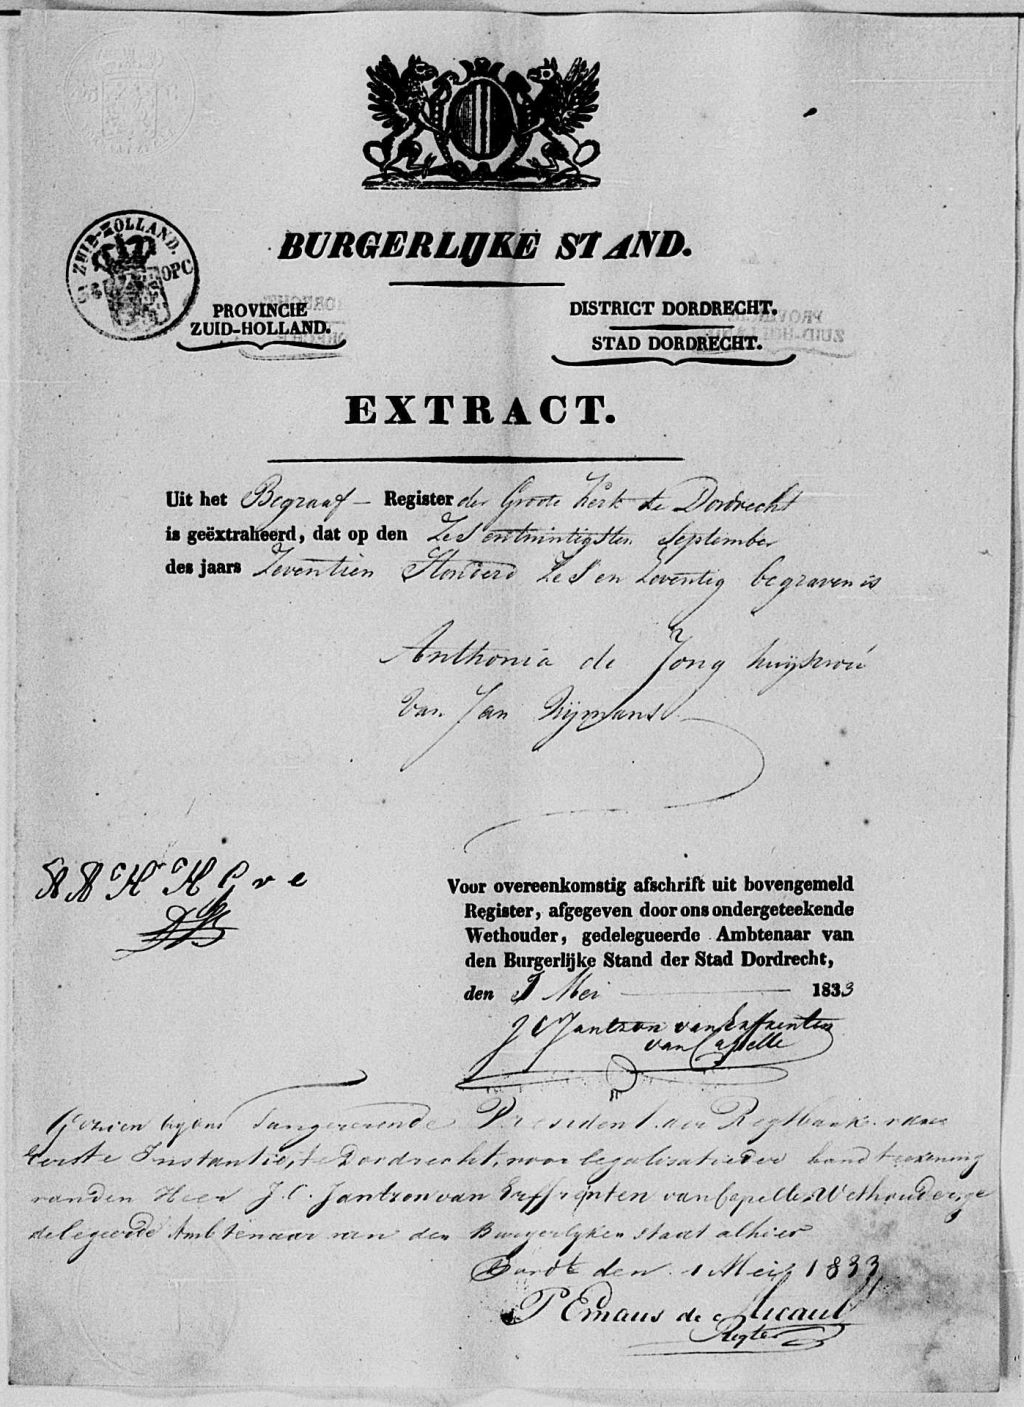 ZUID-HOLLAND.
OPC
BURGERLIJKE STAND.
PROVINCIE
ZUID-HOLLAND.
DISTRICT DORDRECHT.
STAD DORDRECHT.
EXTRACT.
Uit het Begraaf - Register der Groote Kerk te Dordrecht
is geëxtraheerd, dat op den Zes entwintigsten September
des jaars Zeventien Honderd Zes en Zeventig begraven is
Anthonia de Jong huysvrou
van Jan Nijmans
Voor overeenkomstig afschrift uit bovengemeld
Register, afgegeven door ons ondergeteekende
Wethouder, gedelegueerde Ambtenaar van
den Burgerlijke Stand der Stad Dordrecht,
den 1 Mei 1833
J C Jantzon van Erffrenten
van Capelle
Gezien by ons Fungeerende President der Regtbank van
Eerste Instantie, te Dordrecht, voor legalisatie der handteekening
van den Heer J. C. Jantzon van Erffrenten van Capelle Wethouder, ge
delegeerde Ambtenaar van den Burgerlyken stand alhier
Dordt den 1 Mei 1833
Regter